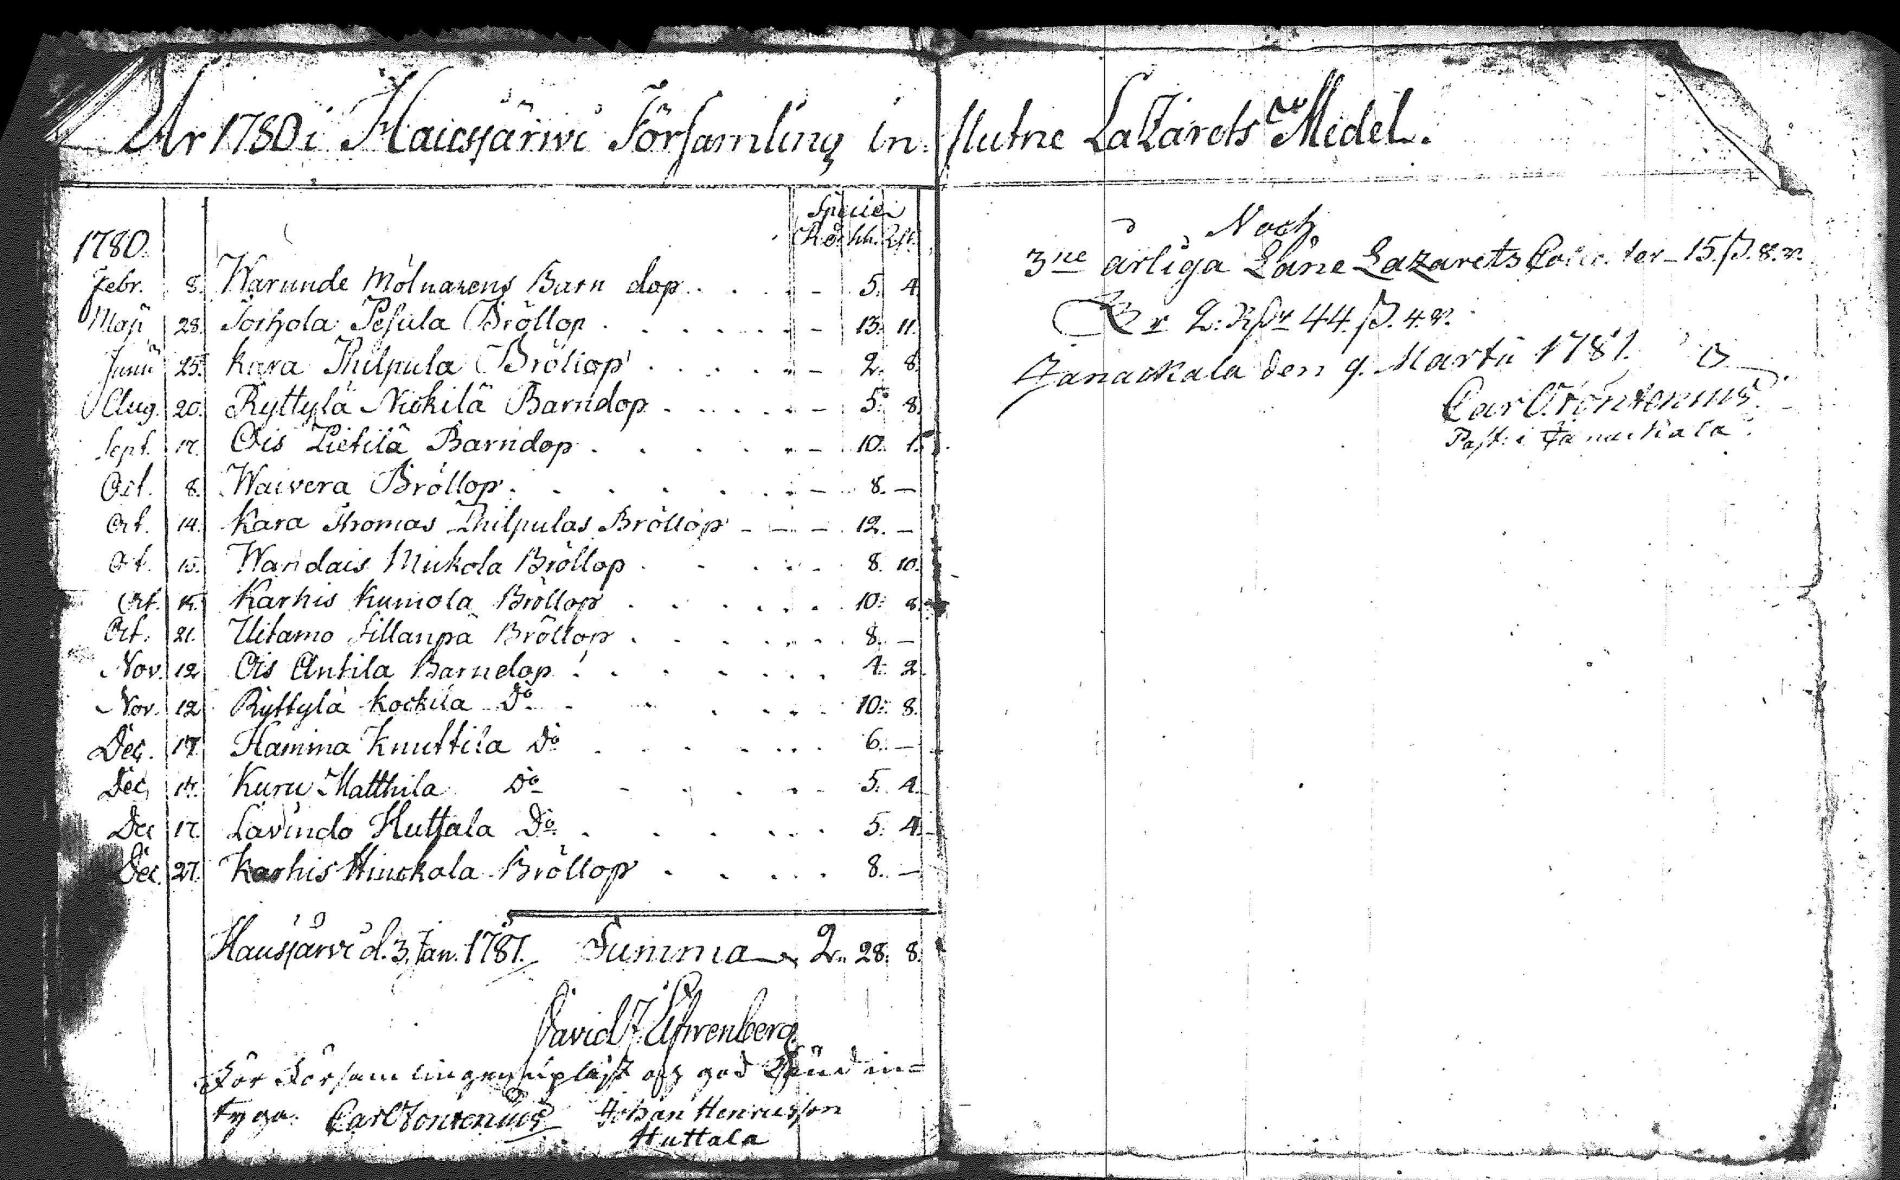 År 1780 i Hausjärwi Församling in flutne LaZarets Medel.
Specier
Rd. ßk. Rst.
1780.
Febr. 8. Warunde Mölnarens Barn dop. . . . - 5. 4.
Maji 28. Torhola Pesula Bröllop . . . . . - 13. 11.
Junii 25. Kara Philpula Bröllop . . . . - 2. 8.
Aug. 20. Ryttylä Nickilä Barndop . . . . - 5. 8.
Sept. 17. Ois Lietilä Barndop . . . . - 10. 1.
Oct. 8. Waivera Bröllop. . . . . - 8. —
Oct. 14. Kara Thomas Philpulas Bröllop - - - 12. —
Oct. 15. Wandais Mickola Bröllop . . . . 8. 10.
Oct. 15. Karhis Kumola Bröllop . . . . . 10. 8.
Oct. 21. Uitamo Sillanpä Bröllop . . . . . 8. —
Nov. 12. Ois Antila Barndop . . . . . 4. 2.
Nov. 12. Ryttylä Kockila Do . . . . . 10. 8.
Dec. 17. Hamina Knuttila Do . . . . . 6. —
Dec. 17. Kuru Matthila Do - . . . . 5. 4.
Dec 17. Lavindo Huttala Do . . . . . 5. 4.
Dec. 27. Karhis Hinckala Bröllop . . . . . 8. —
Hausjärvi d. 3. Jan. 1781. Summa 2. 28. 8.
David J.
För Församlingens god in=
tyga. Carl Fontenius Johan Henricsson
Huttala
Noch
3ne årliga Låne Lazarets ter - 15. ß. 8. rr.
Är 2: Rdr 44. ß. 4. rr.
Janackala den 9. Martii 1781.
Carl Fontenius
Past: i Janackala.